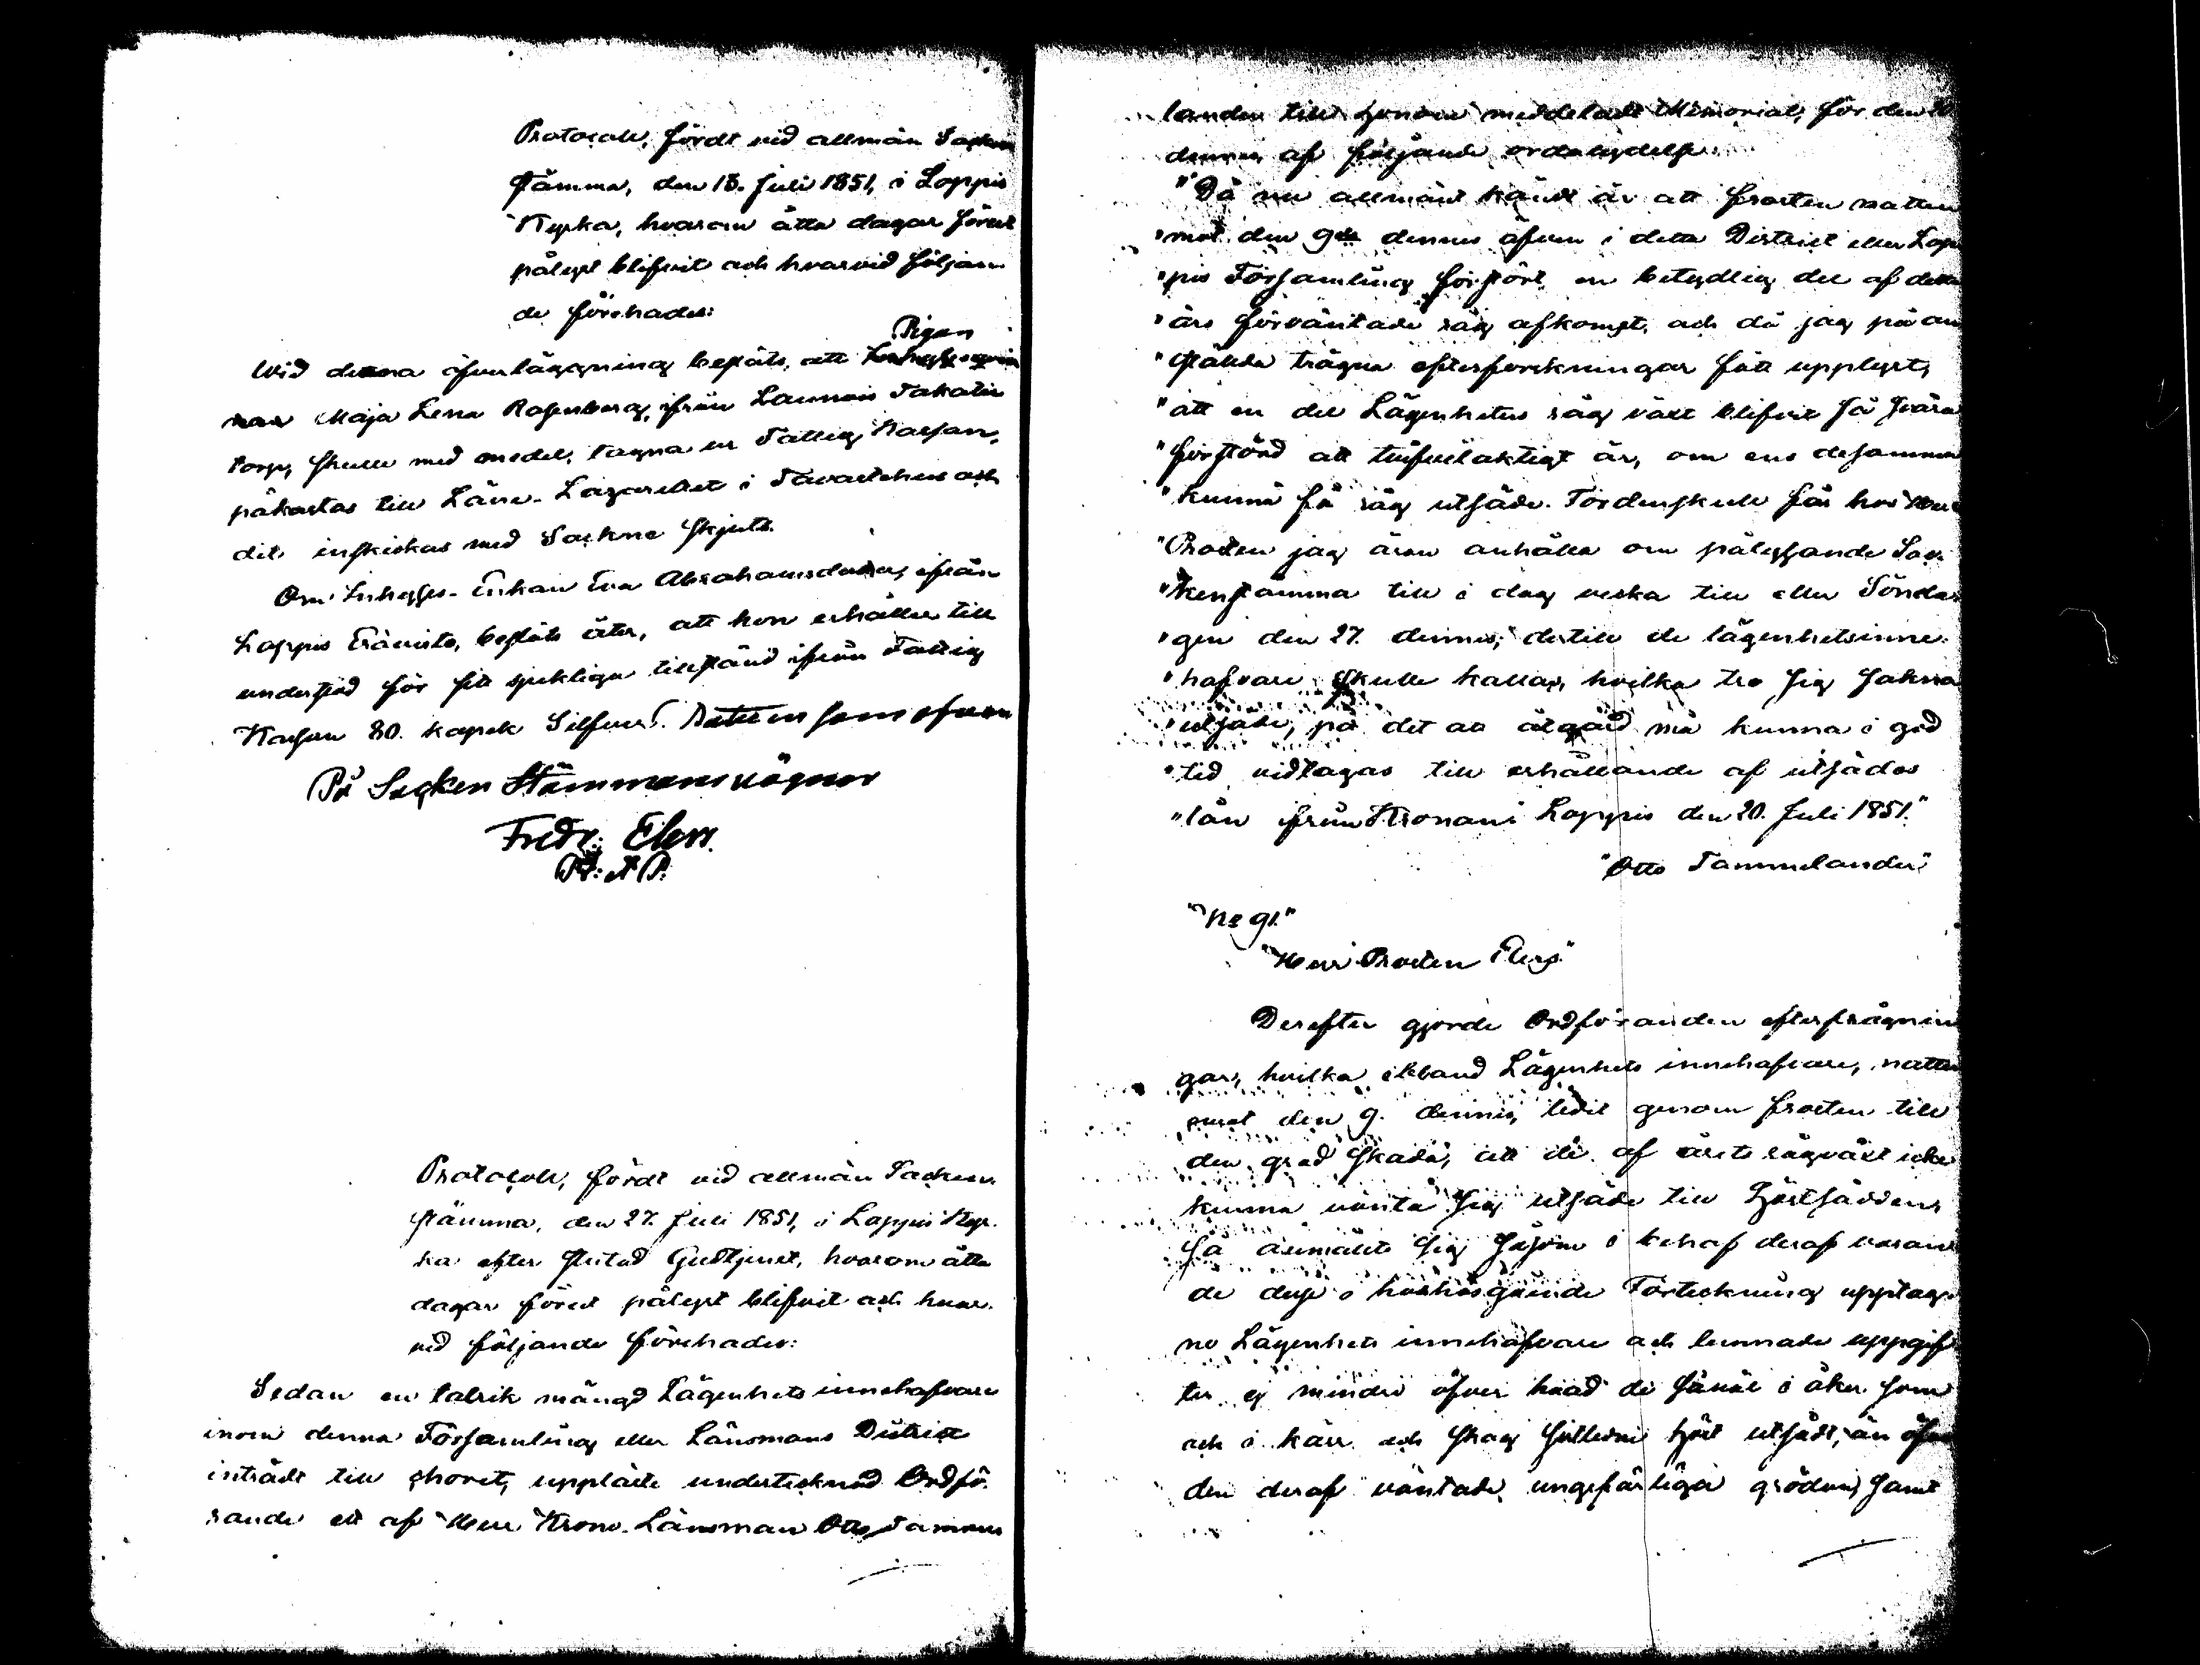 Protocoll, fördt vid allmän Sockne
stämma, den 13. Juli 1851, i Loppis
Kyrka, hvarom åtta dagar förut
pålyst blifvit och hvarvid följan-
de förehades:
Pigan
Wid denna öfverläggning beslöts, att
Maja Lena Rosenberg, ifrån Launois Takalis
torp, skulle med medel, tagna ur Fattig Kassan,
påkostas till Läns-Lazarettet i Tavastehus och
dit inskickas med Sockne skjuts.
Om Inhyses-Enkan Eva Abrahamsdotter, ifrån
Loppis beslöts åter, att hon erhåller till
understöd för sitt sjukliga tillstånd ifrån Fattig
Kassan 80. kopek Silfver. Datum som ofvan
På Socken Stämmans vägnar
Fredr. Elers.
Protocoll, fördt vid allmän Sockne
stämma, den 27. Juli 1851, i Loppis Kyr-
ka efter slutad Gudstjenst, hvarom åtta
dagar förut pålyst blifvit och hvar-
vid följande förehades:
Sedan en talrik mängd Lägenhets innehafvare
inom denna Församling eller Länsmans District
inträdt till choret, uppläste undertecknad Ordfö-
rande ett af Herr Krono-Länsman Otto Tamme
lander till honom meddeladt Memorial, för den 20
dennes af följande ordalydelse:
"Då nu allmänt kändt är att frosten natten
"mot den 9de dennes äfven i detta District eller Lop-
"pis Församling förstört en betydlig del af detta
"års förväntade råg afkomst, och då jag på an
"ställda trägna efterforskningar fått upplyst,
"att en del Lägenheters råg växt blifvit så svåra
"förstörd att tvifvelaktigt är, om ens desamma
"kunna få råg utsäde. Fördenskull får hos Herr
"Prosten jag äran anhålla om pålysande Soc-
"kenstämma till i dag vecka till eller Sönda-
"gen den 27. dennes, dertill de lägenhetsinne-
"hafvare skulle kallas, hvilka tro sig sakna
"utsäde, på det att åtgärd må kunna i god
"tid vidtagas till erhållande af utsädes
"lån från Kronan i Loppis den 20. Juli 1851."
"Otto Tammelander"
"No 91."
"Herr Prosten Elers"
Derefter gjorde Ordföranden efterfrågnin
gar, hvilka ibland Lägenhets innehafvare, natten
mot den 9. dennes, lidit genom frosten till
den grad skada, att de af årets rågväxt icke
kunna vänta sig utsäde till Höstsådden,
så anmälte sig såsom i behof deraf varan
de desse i hoshosgående Förteckning upptag-
ne Lägenhets innehafvare och lemnade uppgif
ter ej mindre öfver hvad de såväl i åker som
och i kärr och skog sistledne höst utsådt, än öfver
den deraf väntade ungefärliga gröden, samt